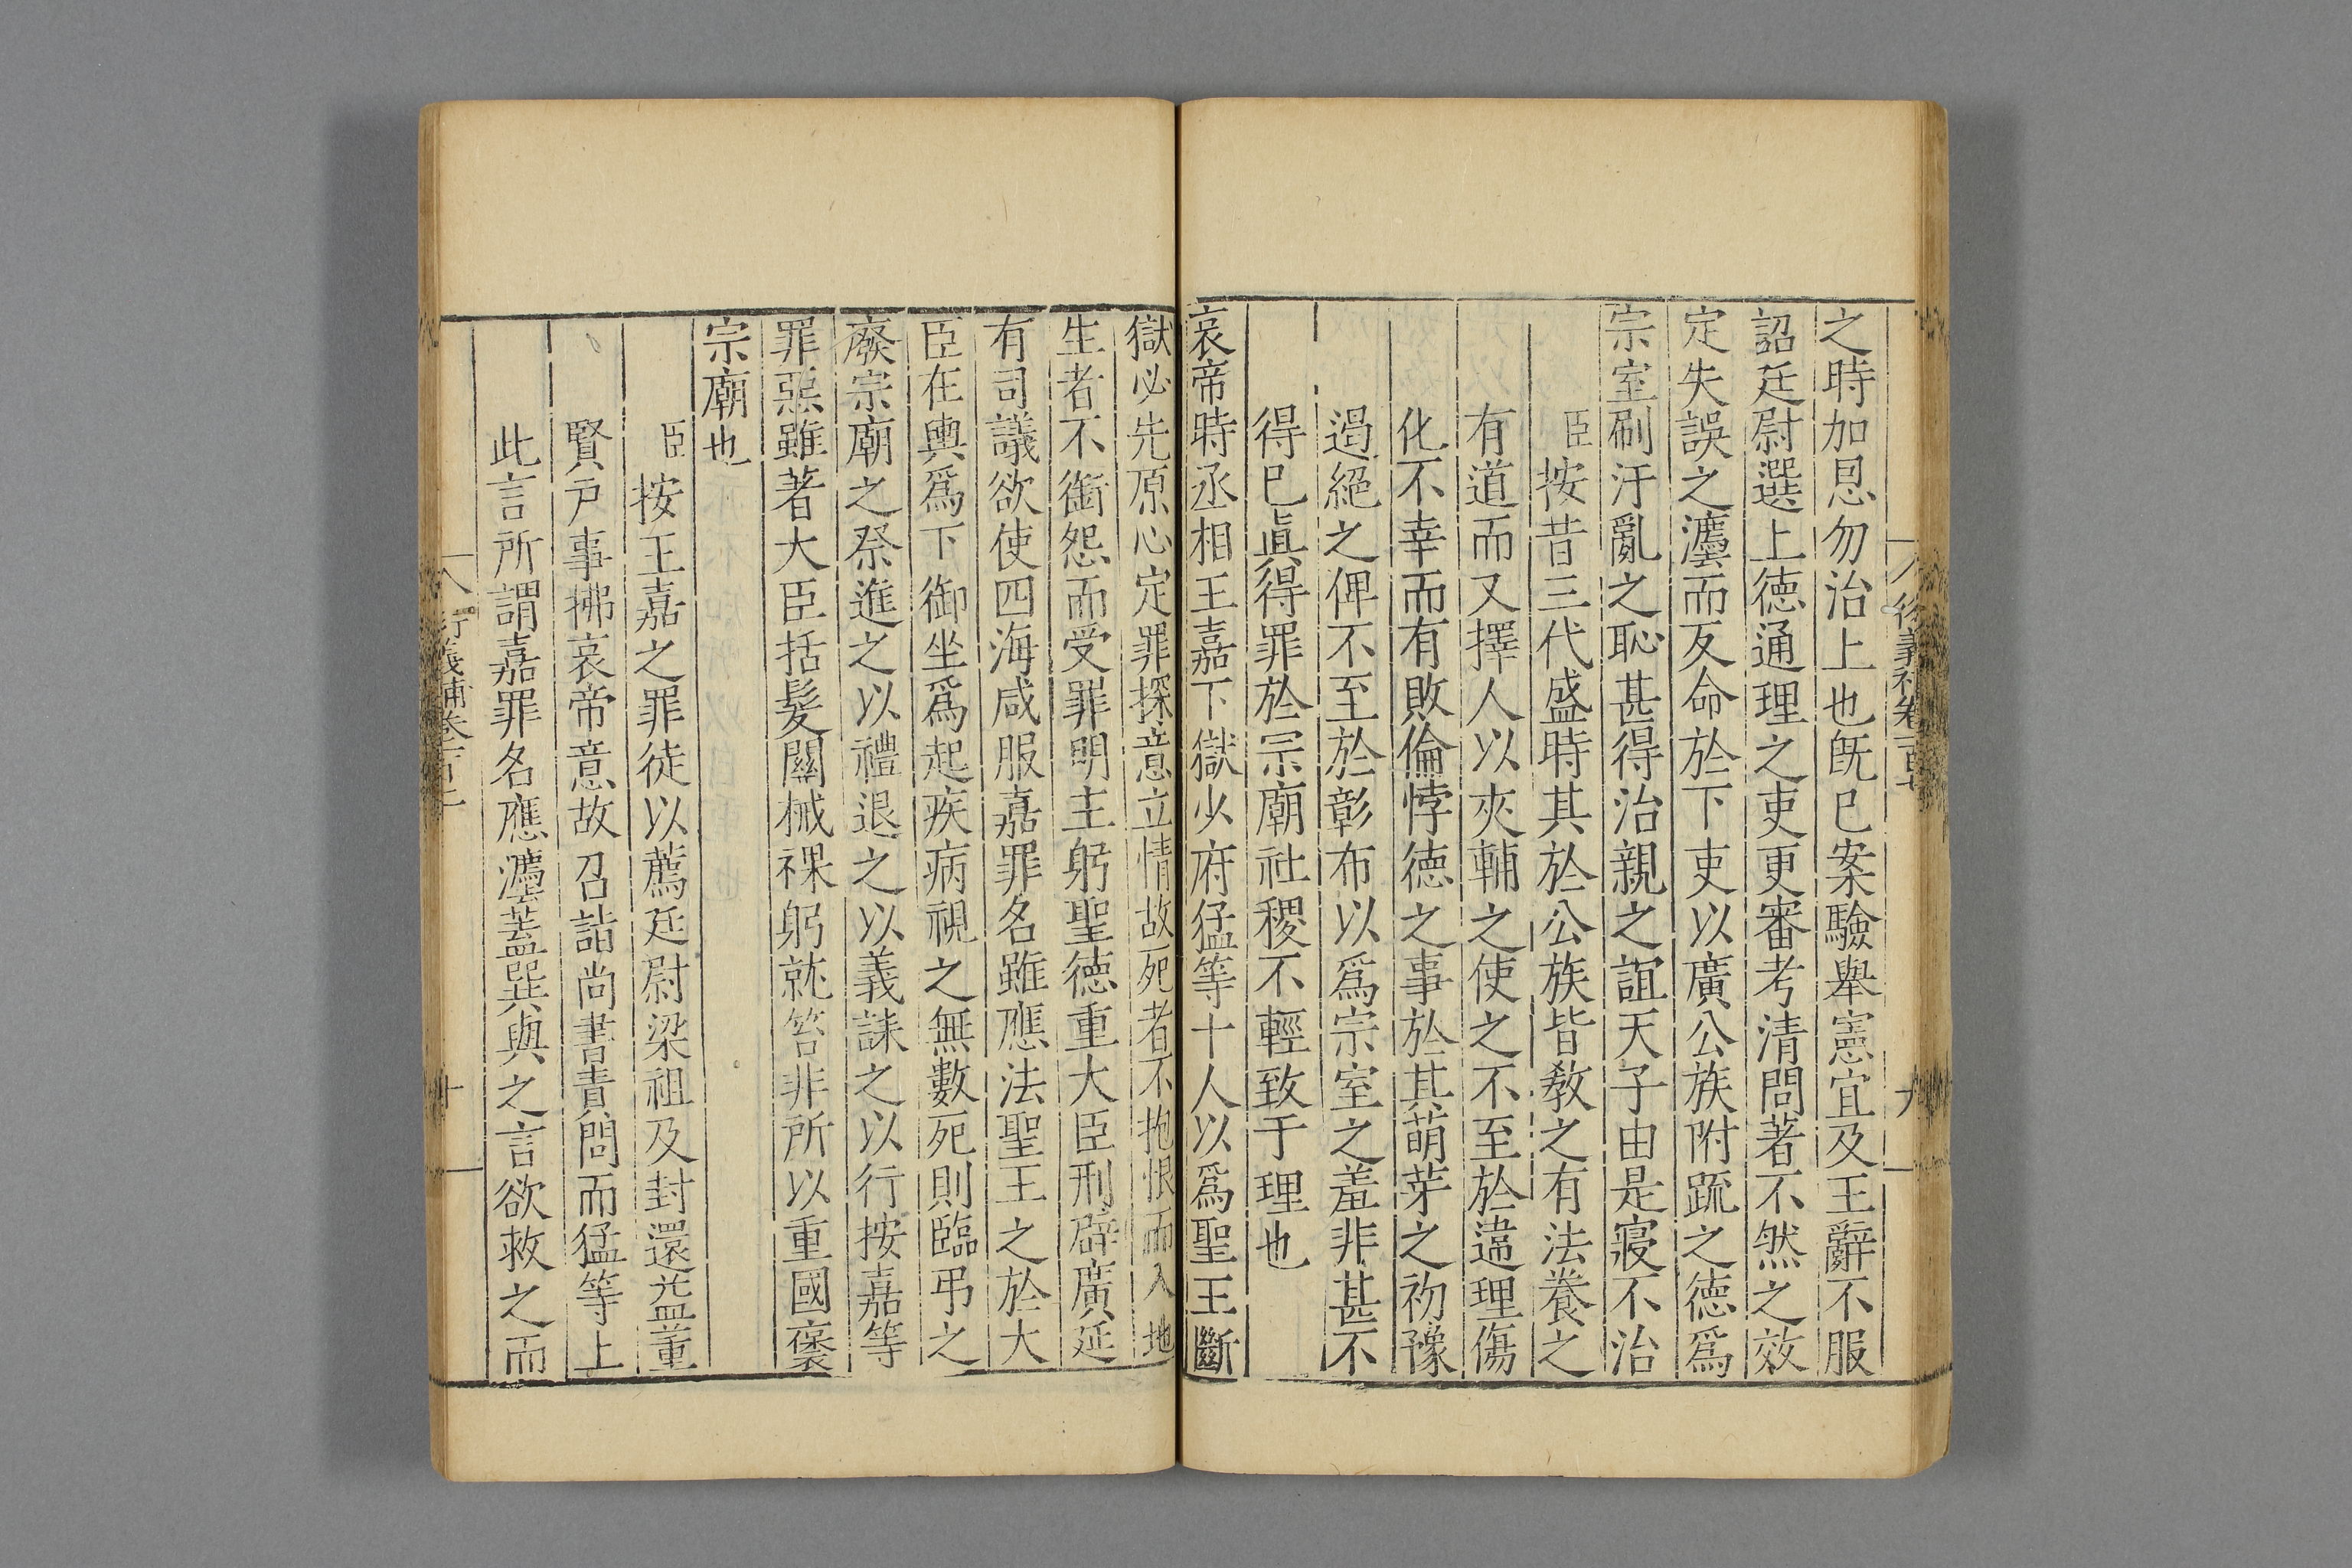 之時加恩勿治上也旣已案驗舉憲宜及王辭不服
詔廷尉選上德通理之吏更審考清問著不然之效
定失誤之灋而反命於下吏以廣公族附疏之德爲
宗室刷汙亂之恥甚得治親之誼天子由是寢不治
臣按昔三代盛時其於公族皆教之有法養之
有道而又擇人以夾輔之使之不至於違理傷
化不幸而有敗倫悖德之事於其萌芽之初豫
遏絕之俾不至於彰布以爲宗室之羞非甚不
得已眞得罪於宗廟社稷不輕致于理也
哀帝時丞相王嘉下獄少府猛等十人以爲聖王斷
獄必先原心定罪探意立情故死者不抱恨而入地
生者不銜怨而受罪明主躬聖德重大臣刑辟廣延
有司議欲使四海咸服嘉罪名雖應法聖王之於大
臣在輿爲下御坐爲起疾病視之無數死則臨弔之
廢宗廟之祭進之以禮退之以義誄之以行按嘉等
罪惡雖著大臣括髮關械裸躬就笞非所以重國褒
宗廟也
臣按王嘉之罪徒以薦廷尉梁祖及封還益董
賢戸事拂哀帝意故召詣尚書責問而猛等上
此言所謂嘉罪名應灋蓋巽與之言欲救之而
衍義補卷百 十